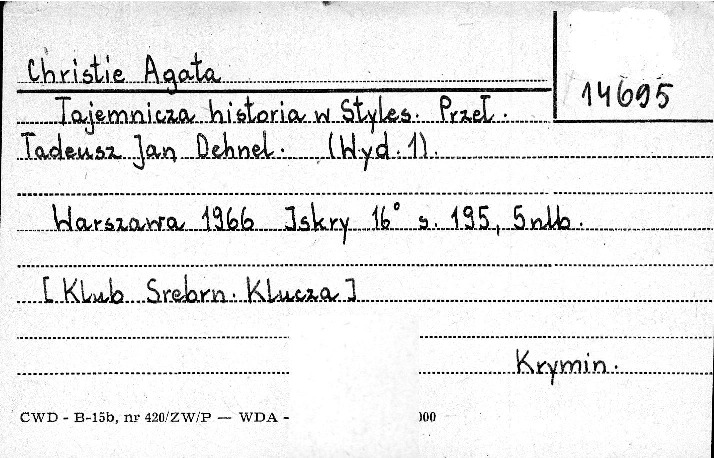 Christie Agata
14695
Tajemnicza historia w Styles. Przeł.
Tadeusz Jan Dehnel. (Wyd. 1).
Warszawa 1966 Iskry 16° s. 195, 5 nlb.
[Klub Srebrn. Klucza]
Krymin.
CWD - B-15b, nr 420/ZW/P — WDA - 000